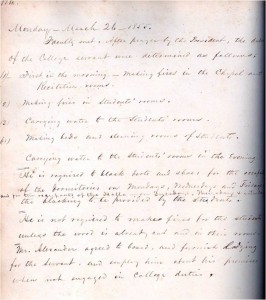 Monday March 26 - 1855.
Faculty met. After prayer by the President, the duties
of the College servant were determined as follows.
First in the morning - making fires in the Chapel and
Recitation rooms.
Making fires in Students' rooms.
Carrying water to the Students' rooms.
Making beds and cleaning rooms of students.
Carrying water to the Students' rooms in the evening
He is required to black boots and shoes for the occupants
of the dormitories on Mondays, Wednesdays and Fridays
the blacking to be provided by the Students.
He is not required to make fires for the students
unless the wood is already cut and in their rooms.
Mr. Alexander agreed to board, and furnish lodging
for the servant, and employ him about his premises
when not engaged in College duties.